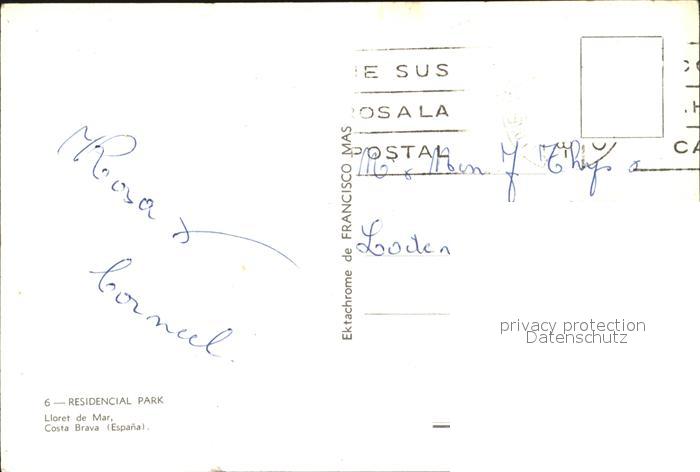 E SUS
OSALA
POSTAL
CA
Rosa +
Corneel.
Ektachrome de FRANCISCO MAS
J Thys
privacy protection
Datenschutz
6 — RESIDENCIAL PARK
Lloret de Mar,
Costa Brava (España).